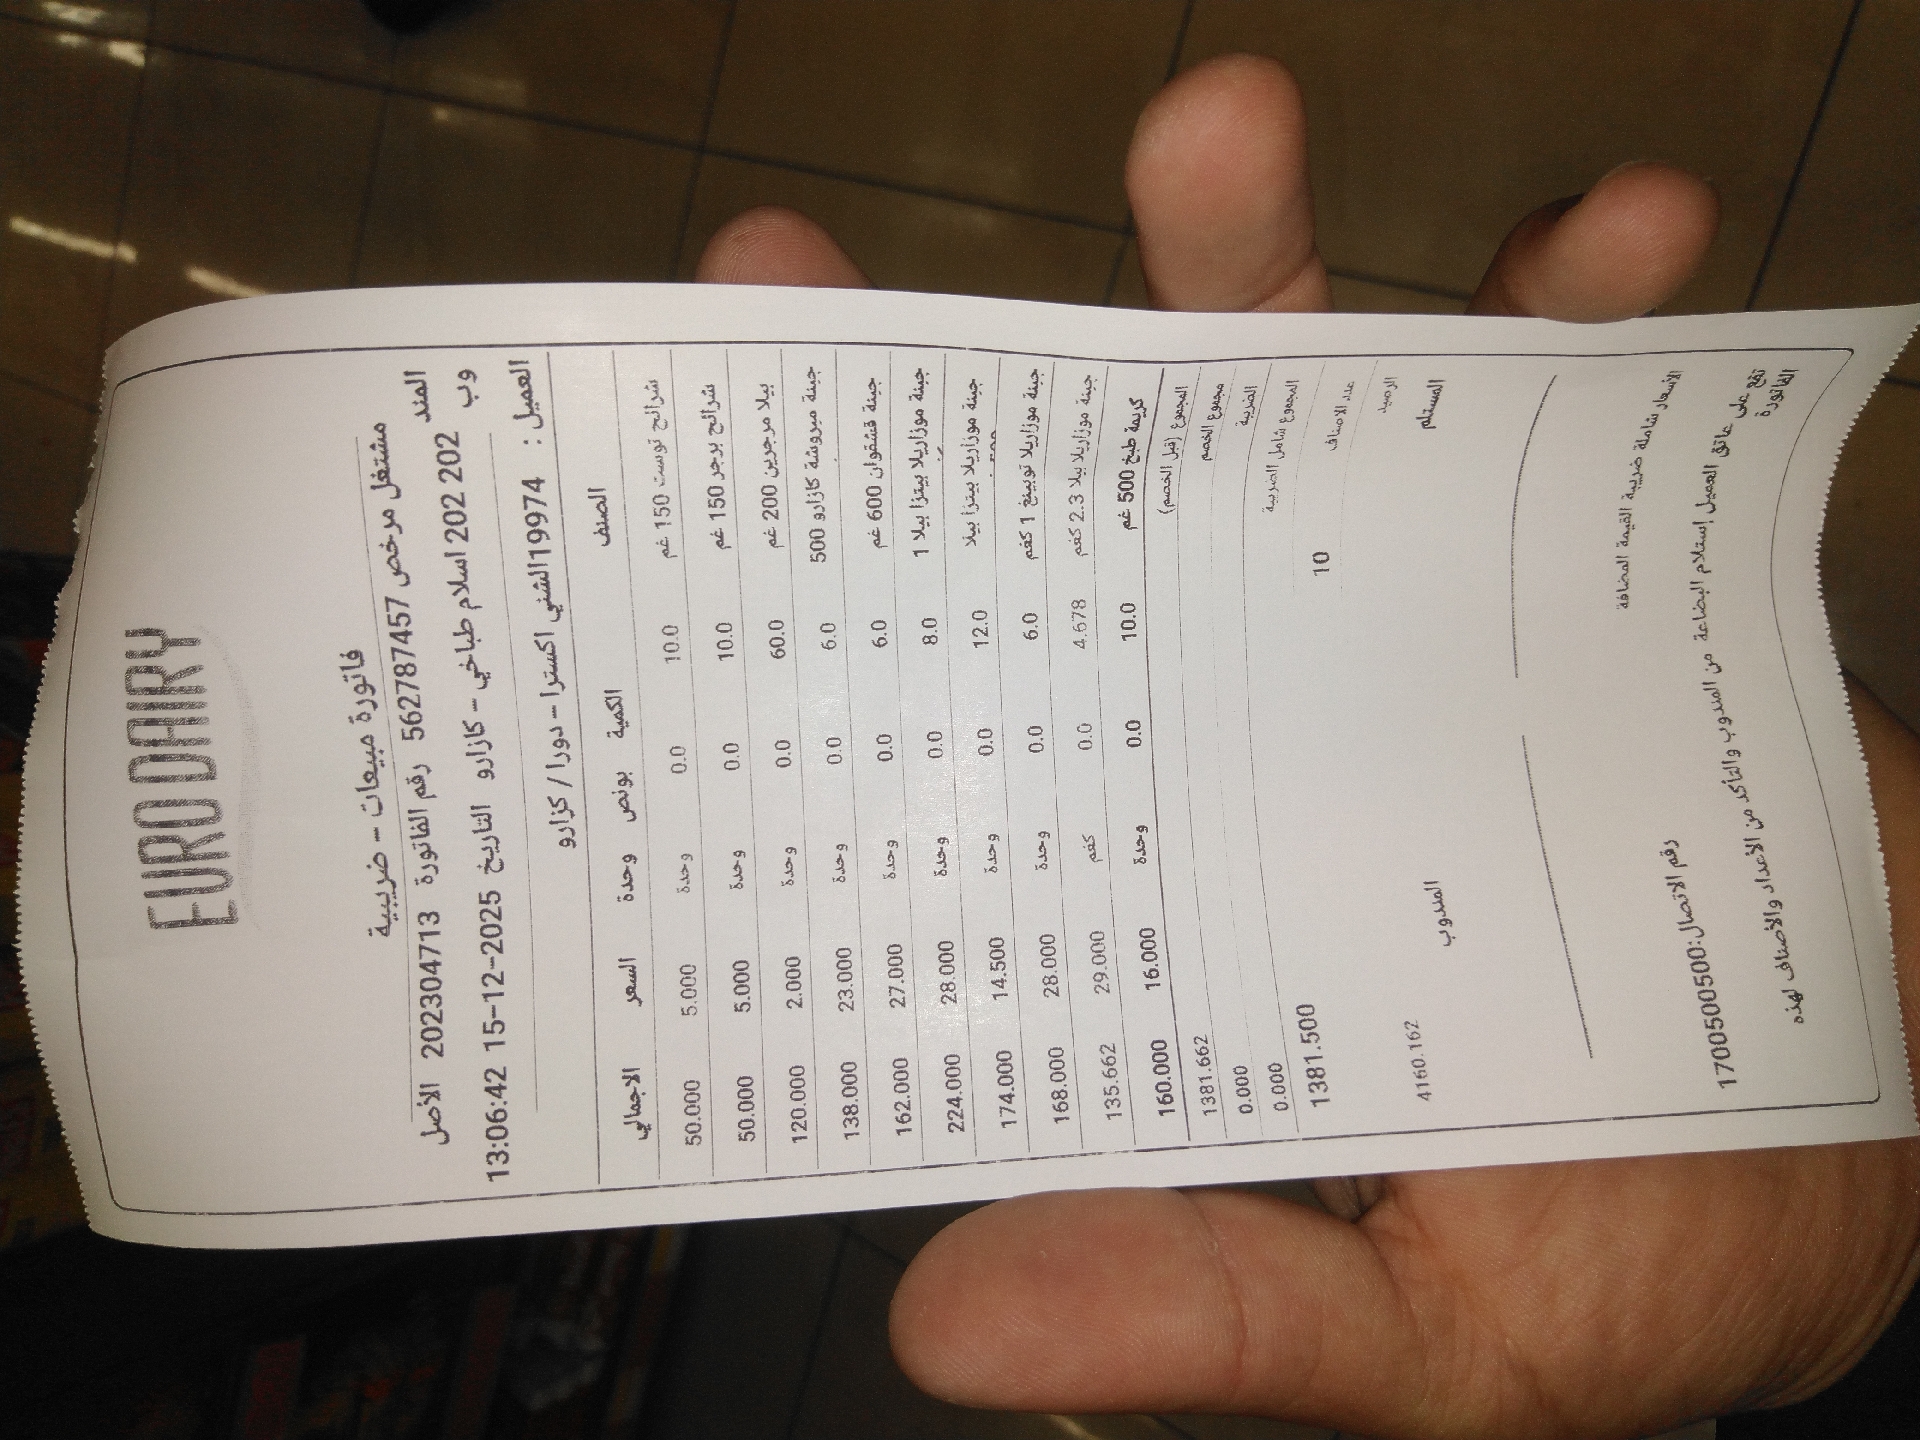 EURODAIRY
فاتورة مبيعات - ضريبية
مشتغل مرخص 562787457 رقم الفاتورة 202304713 الأصل
المندوب 202 202 اسلام طباخي - كازارو التاريخ 15-12-2025 13:06:42
العميل : 19974الشني اكسترا - دورا / كزارو
الصنف الكمية بونص وحدة السعر الاجمالي
شرائح توست 150 غم 10.0 0.0 وحدة 5.000 50.000
شرائح برجر 150 غم 10.0 0.0 وحدة 5.000 50.000
بيلا مرجرين 200 غم 60.0 0.0 وحدة 2.000 120.000
جبنة مبروشة كازارو 500 6.0 0.0 وحدة 23.000 138.000
جبنة قشقوان 600 غم 6.0 0.0 وحدة 27.000 162.000
جبنة موزاريلا بيتزا بيلا 1 8.0 0.0 وحدة 28.000 224.000
جبنة موزاريلا بيتزا بيلا 12.0 0.0 وحدة 14.500 174.000
جبنة موزاريلا توبينغ 1 كغم 6.0 0.0 وحدة 28.000 168.000
جبنة موزاريلا بيلا 2.3 كغم 4.678 0.0 كغم 29.000 135.662
كريمة طبخ 500 غم 10.0 0.0 وحدة 16.000 160.000
المجموع (قبل الخصم) 1381.662
مجموع الخصم 0.000
الضريبة 0.000
المجموع شامل الضريبة 1381.500
عدد الاصناف 10
الرصيد 4160.162
المستلم المندوب
الأسعار شاملة ضريبة القيمة المضافة
رقم الاتصال:1700500500
تقع على عاتق العميل إستلام البضاعة من المندوب والتأكد من الأعداد والأصناف لهذه
الفاتورة